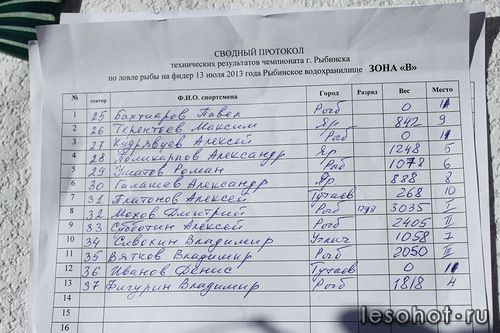 СВОДНЫЙ ПРОТОКОЛ
технических результатов чемпионата г. Рыбинска
по ловле рыбы на фидер 13 июля 2013 года Рыбинское водохранилище ЗОНА «В»
№ сектор Ф.И.О. спортсмена Город Разряд Вес Место
1 25 Бахтиаров Павел Рыб 0 11
2 26 Терентьев Максим Яр 842 9
3 27 Кудрявцев Алексей Рыб 0 11
4 28 Поликарпов Александр Яр 1248 5
5 29 Ушатов Роман Рыб 1078 6
6 30 Галашев Александр Яр 888 8
7 31 Платонов Алексей Тутаев 268 10
8 32 Мохов Дмитрий Рыб 3035 I
9 33 Субботин Алексей Рыб 2405 II
10 34 Сивокин Владимир Углич 1058 7
11 35 Вятков Владимир Рыб 2050 III
12 36 Иванов Денис Тутаев 0 11
13 37 Фигурин Владимир Рыб 1818 4
14
15
16
lesohot.ru